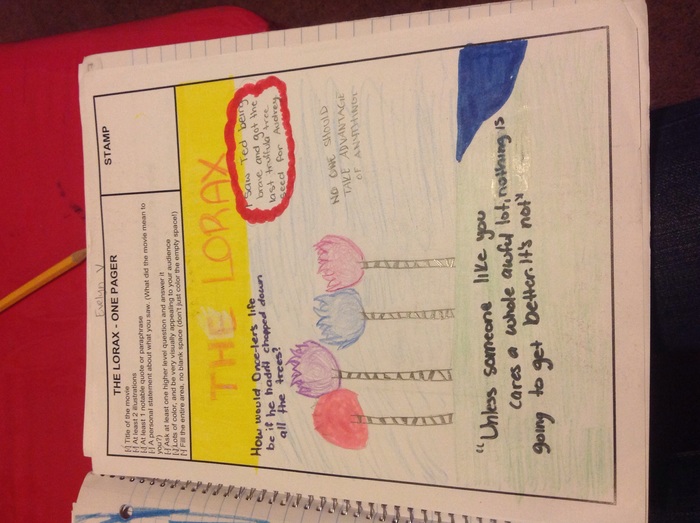 Evelyn V
THE LORAX - ONE PAGER
STAMP
[-] Title of the movie
[-] At least 2 illustrations
[-] At least 1 notable quote or paraphrase
[-] A personal statement about what you saw. (What did the movie mean to
you?)
[-] Ask at least one higher level question and answer it
[-] Lots of color, and be very visually appealing to your audience
[-] Fill the entire area, no blank space (don't just color the empty space!)
THE LORAX
How would Once-lers life
be if he hadn't chopped down
all the trees?
I saw Ted being
brave and got the
last truffula tree
seed for Audrey
NO ONE SHOULD
TAKE ADVANTAGE
OF ANYTHING
"Unless someone like you
cares a whole awful lot, nothing is
going to get better. It's not"